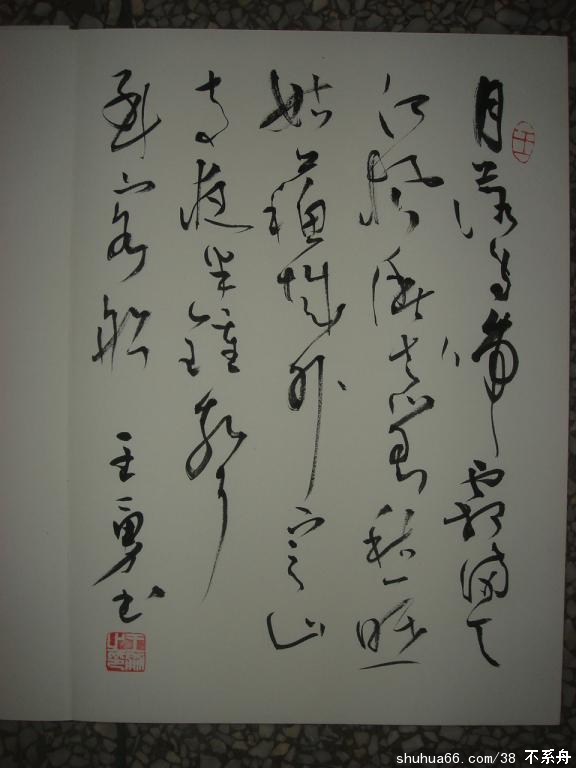 月落烏啼霜滿天
江楓漁火對愁眠
姑蘇城外寒山
寺夜半鐘聲
到客船 王勇书
shuhua66.com/38 不系舟